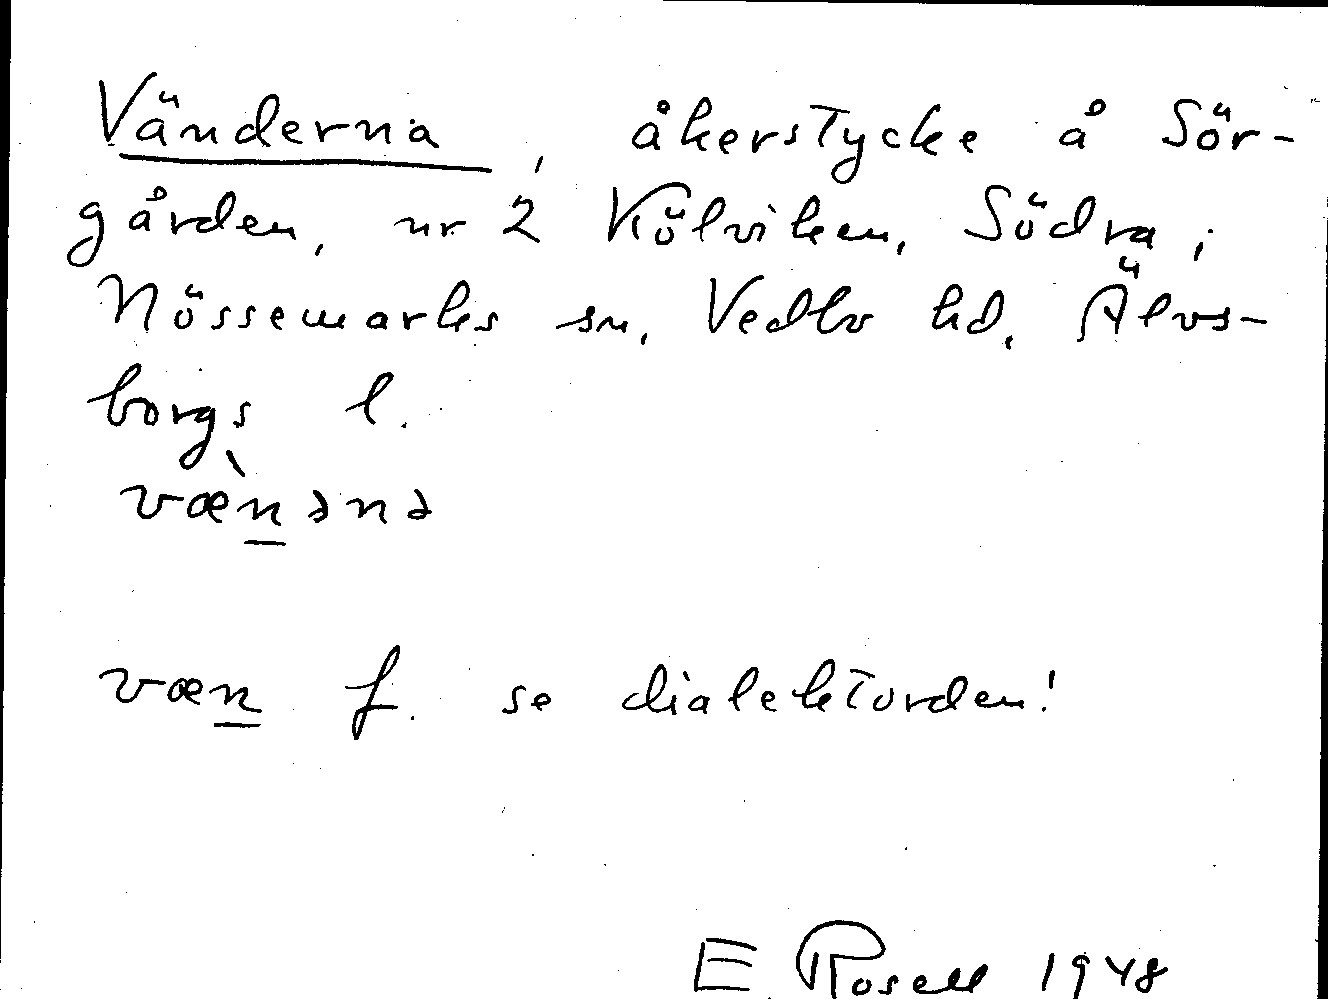 Vänderna, åkerstycke å Sör-
gården, nr 2 Kölviken, Södra i
Nössemarks sn, Vedbo hd, Älvs-
borgs l.
væ̀n̲ənə
væn̲ f. se dialektorden!
E Rosell 1948